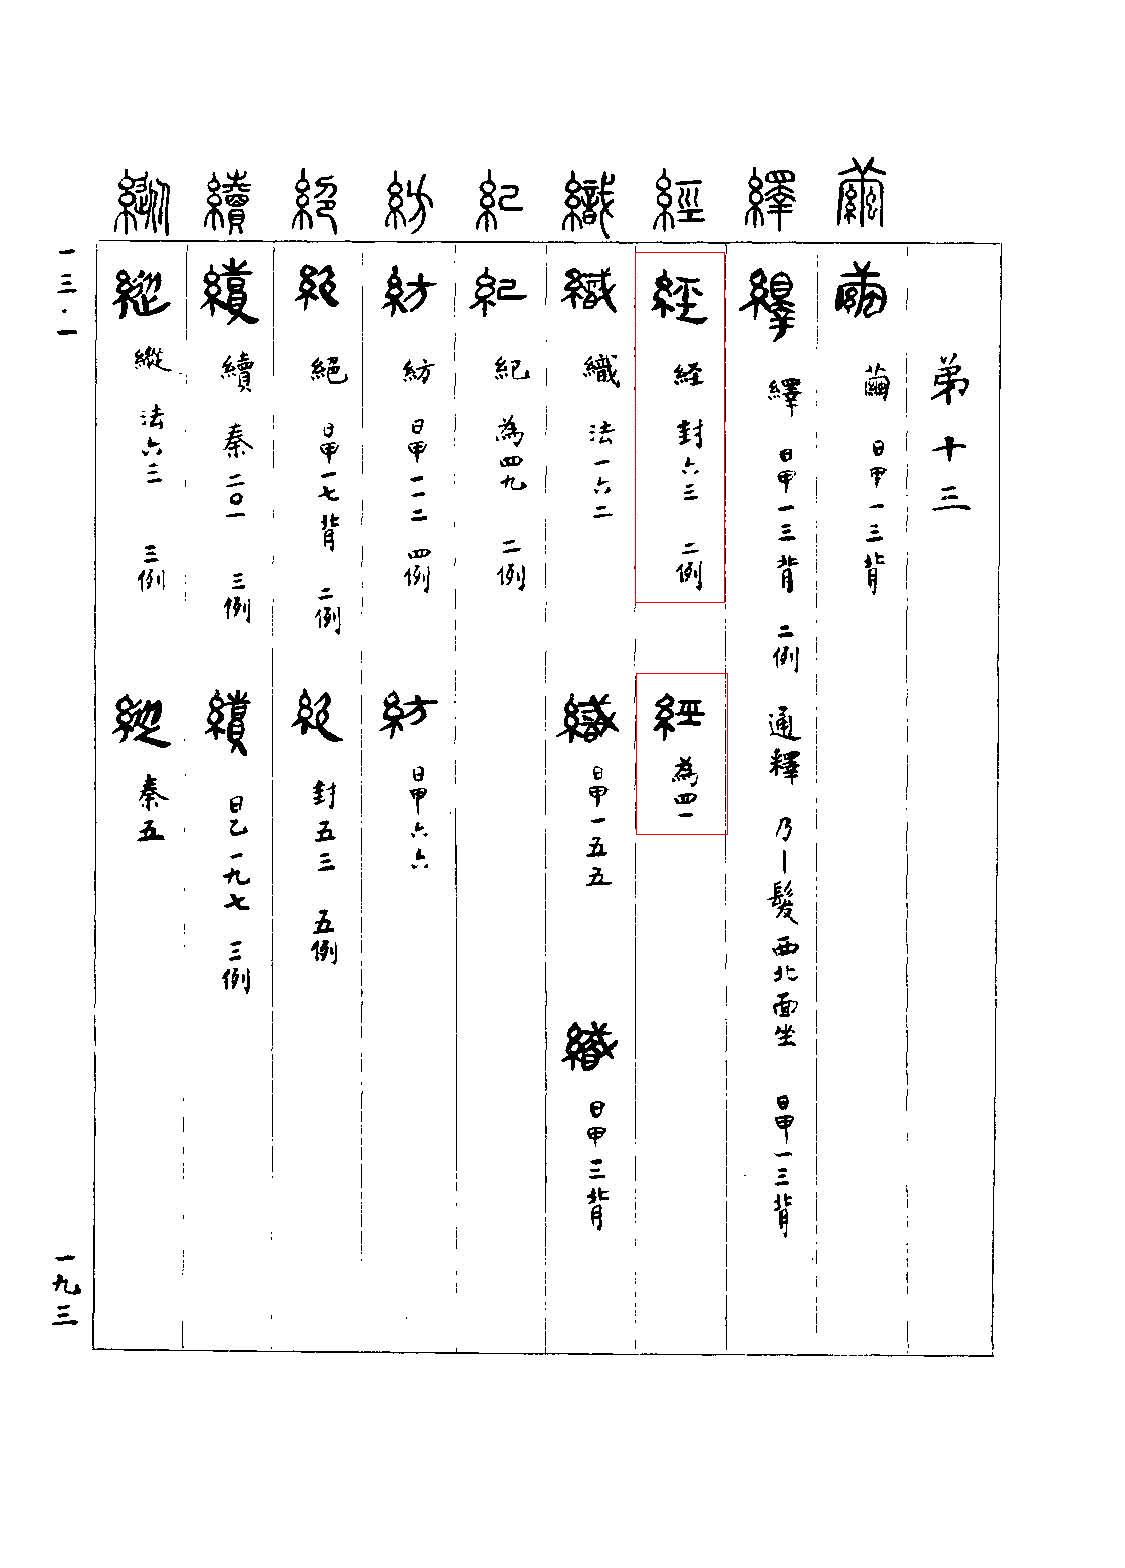 弟十三
繭 繭 繭 日甲一三背
繹 繹 繹 日甲一三背 二例 通釋 乃一髮西北面坐 日甲一三背
經 經 経 封六三 二例 經 為四一
織 織 織 法一六二 織 日甲一五五 織 日甲三背
紀 紀 紀 為四九 二例
紡 紡 紡 日甲一一二 四例 紡 日甲六六
絕 絕 絕 日甲一七背 二例 絕 封五三 五例
續 續 續 秦二〇一 三例 續 日乙一九七 三例
縱 縱 縱 法六三 三例 縱 秦五
一三·一
一九三